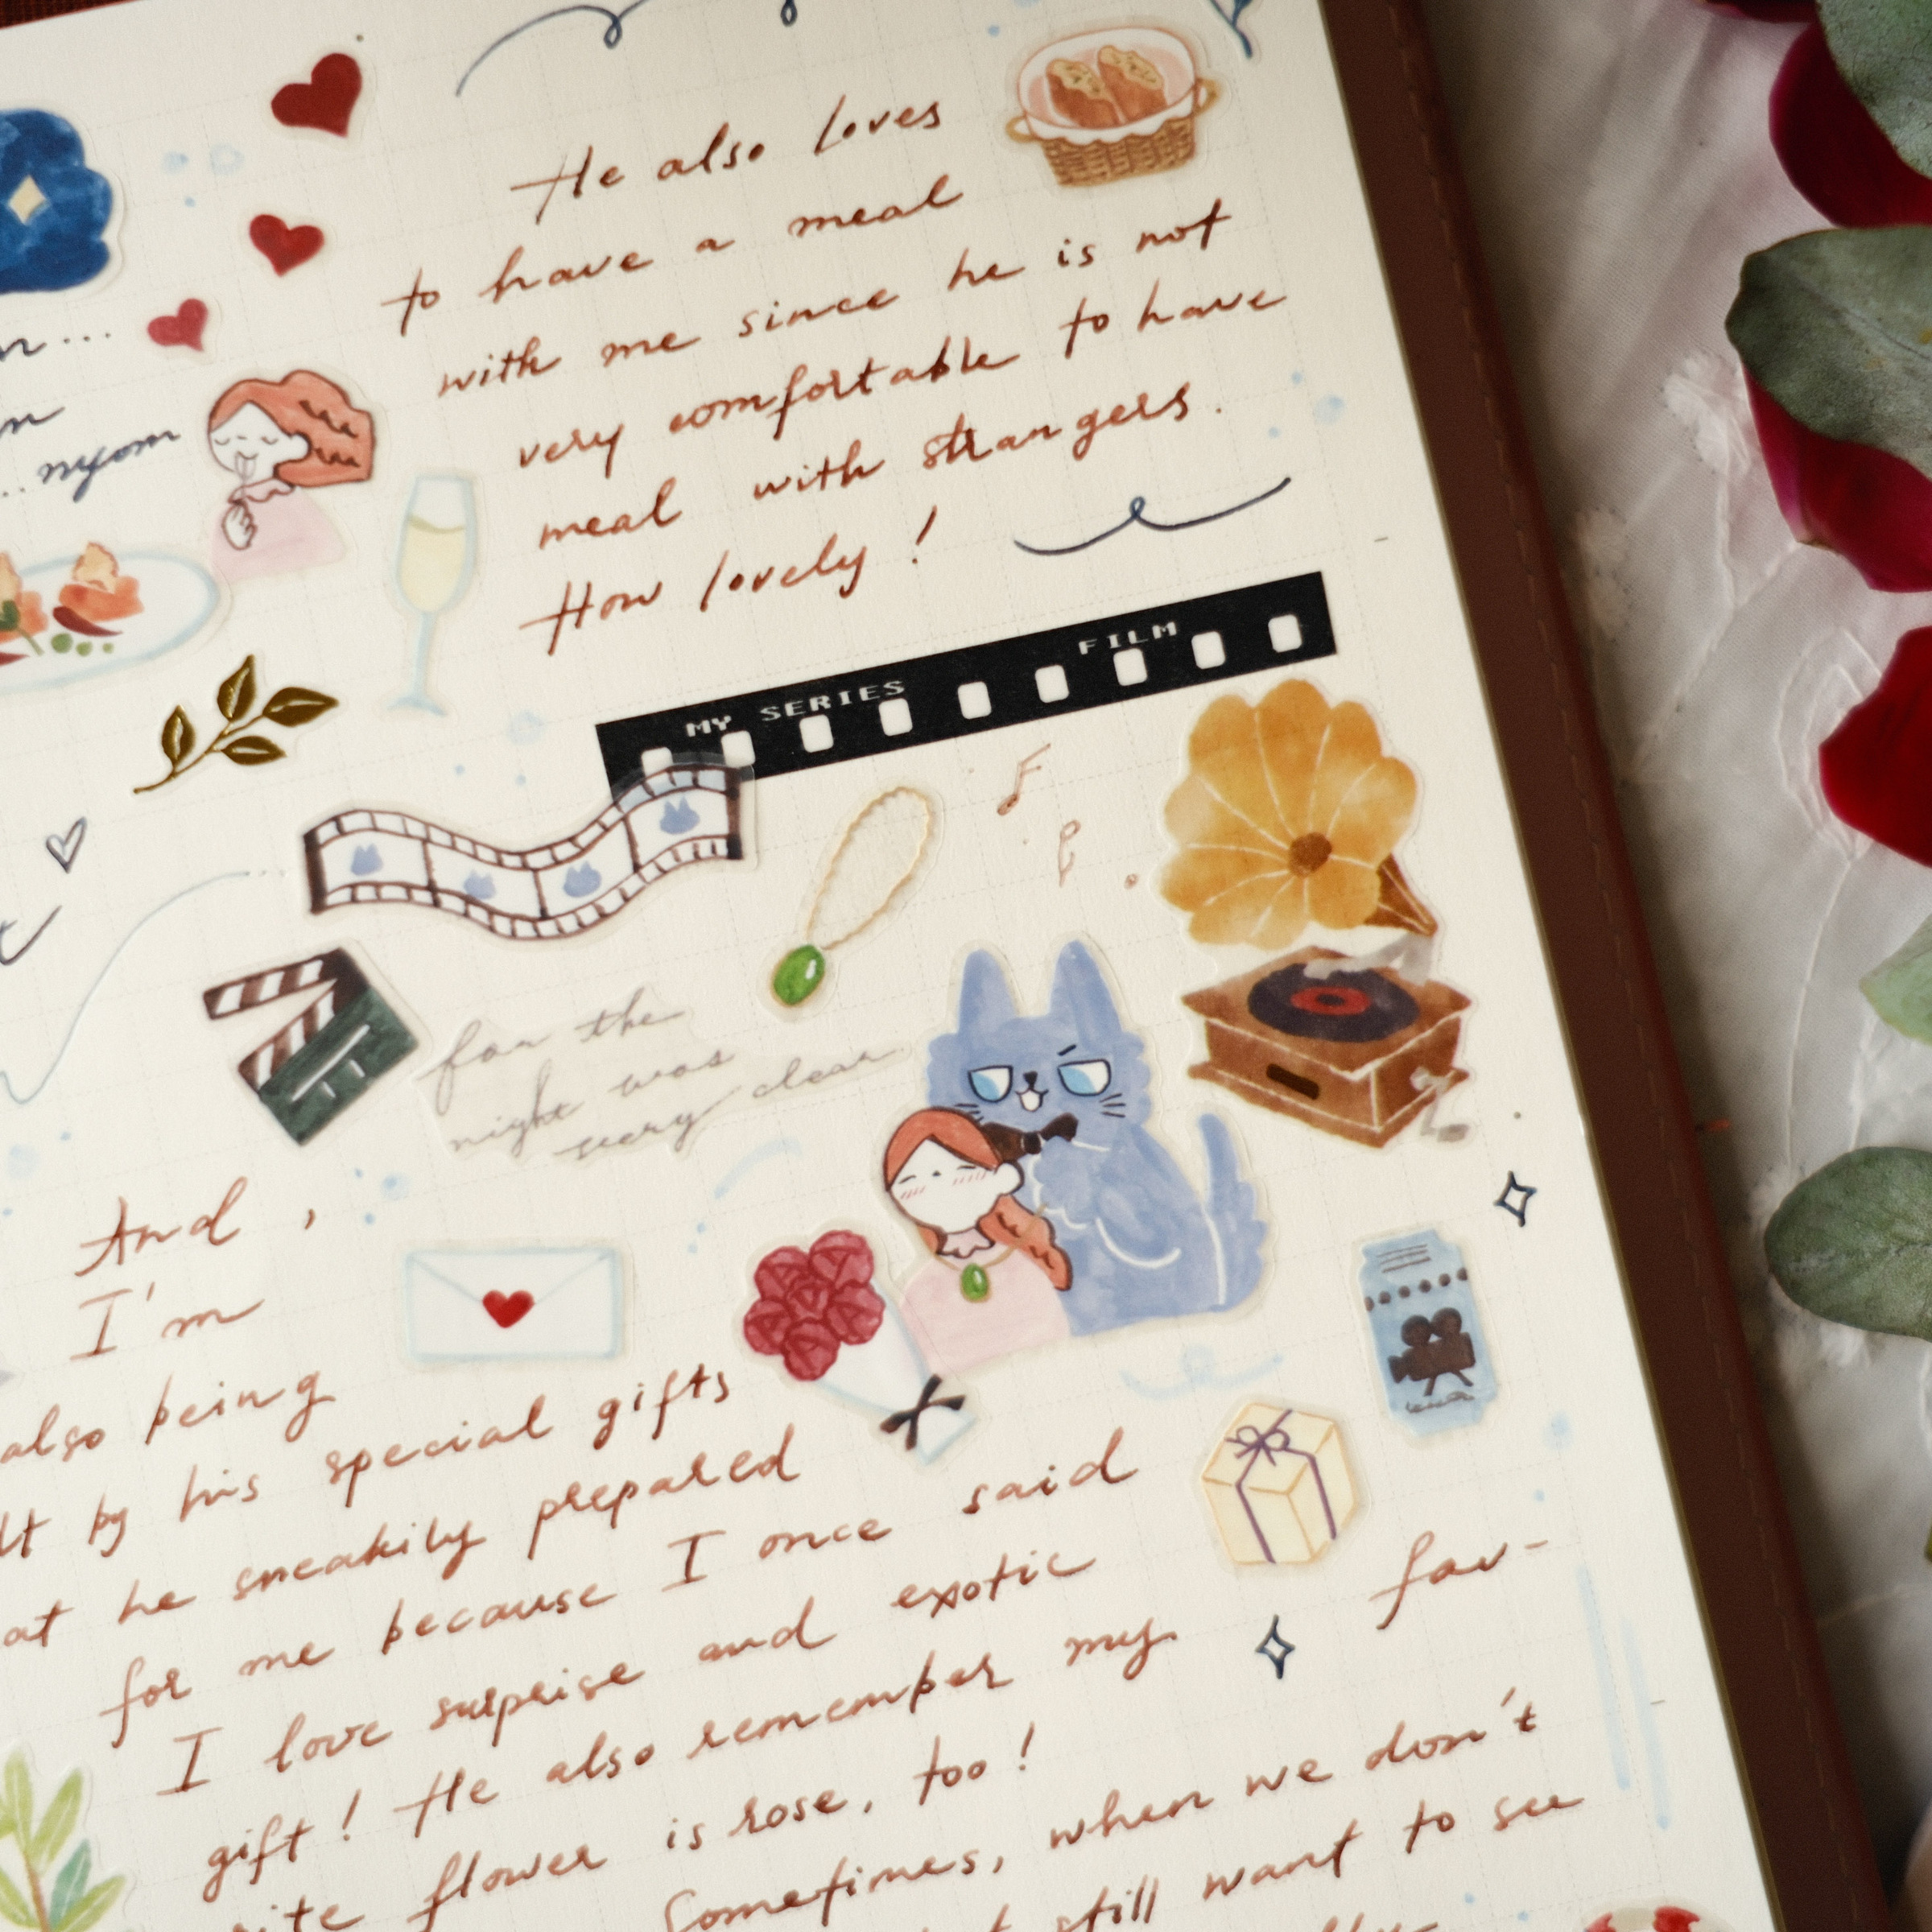 He also loves
to have a meal
with me since he is not
very comfortable to have
meal with strangers.
How lovely!
nyom
MY SERIES FILM
for the
night was
very clear
And,
I'm
also being
by his special gifts
at he sneakily prepared
for me because I once said
I love surprise and exotic
gift! He also remember my fav-
ite flower is rose, too!
Sometimes, when we don't
still want to see